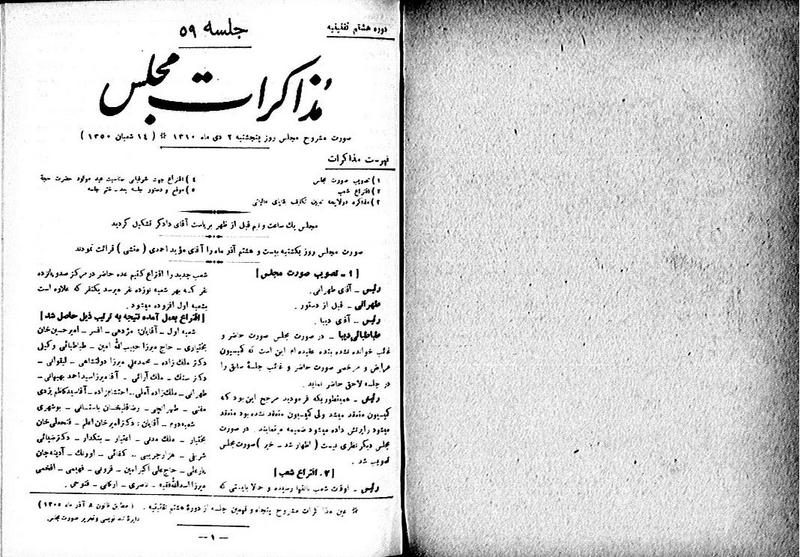 دوره هشتم تقنینیه
جلسه ۵۹
مذاکرات مجلس
صورت مشروح مجلس روز پنجشنبه ۲ دی ماه ۱۳۱۰ * ( ۱۴ شعبان ۱۳۵۰ )
فهرست مذاکرات
۱) تصویب صورت مجلس
۲) اقتراع شعب
۳) مذاکره در لایحه تعیین تکلیف قضایای مالیاتی
۴) اقتراع جهت شرفیابی بمناسبت عید مولود حضرت حجة
۵) موقع و دستور جلسه بعد - ختم جلسه
مجلس یك ساعت و نیم قبل از ظهر بریاست آقای دادگر تشکیل گردید
صورت مجلس روز یکشنبه بیست و هشتم آذر ماه را آقای مؤید احمدی ( منشی ) قرائت نمودند
[ ۱ - تصویب صورت مجلس ]
رئیس - آقای طهرانی.
طهرانی - قبل از دستور.
رئیس - آقای دیبا.
طباطبائی دیبا - در صورت مجلس صورت حاضر و
غائب خوانده نشده بنده عقیده ام این است که کمیسیون
عرایض و مرخصی صورت حاضر و غائب جلسۀ سابق را
در جلسه لاحق حاضر نماید.
رئیس - همینطوریکه فرمودید مرجع این بود که
کمیسیون منعقد میشد ولی کمیسیون منعقد نشده بود منعقد
میشود راپرتش داده میشود ضمیمه میشود. در صورت
مجلس دیگر نظری نیست ( اظهار شد - خیر ) صورت مجلس
تصویب شد.
[ ۲ - اقتراع شعب ]
رئیس - اوقات شعب بانتها رسیده و حالا بایستی که
شعب جدید را اقتراع کنیم عده حاضر در مرکز صد و پانزده
نفر که بهر شعبه نوزده نفر میرسد یکنفر که علاوه است
بشعبه اول افزوده میشود.
[ اقتراع بعمل آمده نتیجه به ترتیب ذیل حاصل شد ]
شعبه اول - آقایان: مژدهی - افسر - امیر حسین خان
بختیاری - حاج میرزا حبیب الله امین - طباطبائی وکیلی
دکتر ملك زاده - محمد علی میرزا دولتشاهی - لیقوانی -
دکتر سنك - ملك آرائی - آقا میرزا سید احمد بهبهانی -
طهرانی - ملك زاده آملی - احتشام زاده - آقا سید کاظم یزدی
مفتی - طهرانچی - رضا قلیخان باستانی - بوشهری
شعبه دوم - آقایان: دکتر امیر خان اعلم - فتحعلی خان
بختیار - ملك مدنی - اعتبار - بنکدار - دکتر ضیائی
شریفی - هزار جریبی - کفائی - اورنك - آدینه جان
یار علی - حاج علی اکبر امین - قزوینی - فهیمی - افخمی
میرزا اسد الله فقیه - ناصری - ارکانی - فتوحی.
* عین مذاکرات مشروح پنجاه و نهمین جلسه از دورۀ هشتم تقنینیه. ( مطابق قانون ۸ آذر ماه ۱۳۰۵ )
دایرۀ تند نویسی و تحریر صورت مجلس
- ۱ -